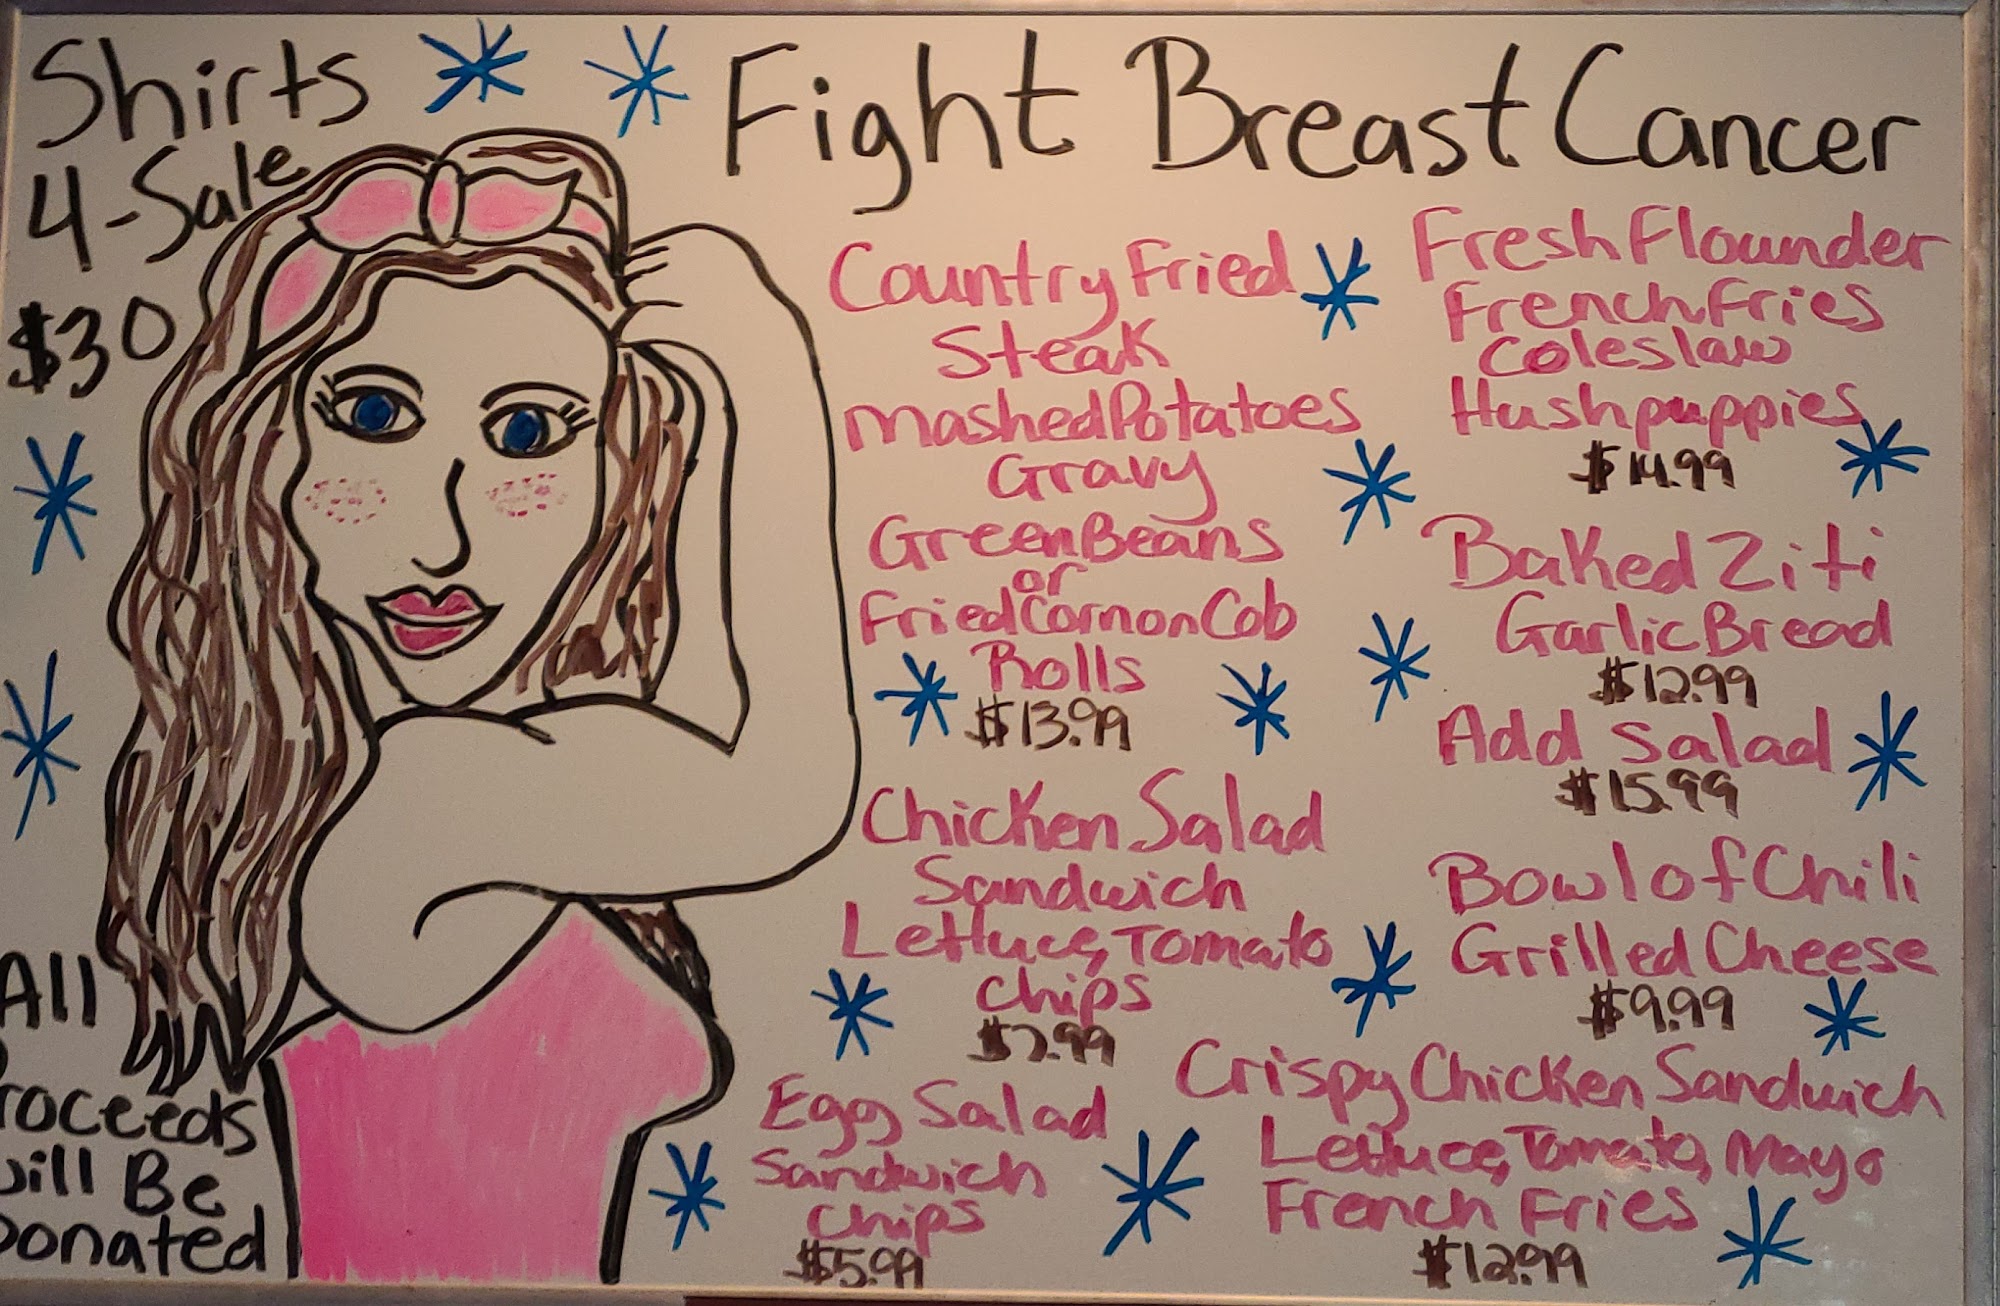 Shirts
4-Sale
$30
All
Proceeds
Will Be
Donated
Fight Breast Cancer
Country Fried
Steak
Mashed Potatoes
Gravy
Green Beans
or
Fried Corn on Cob
Rolls
$13.99
Chicken Salad
Sandwich
Lettuce, Tomato
Chips
$7.99
Egg Salad
Sandwich
Chips
$5.99
Fresh Flounder
French Fries
Coleslaw
Hushpuppies
$14.99
Baked Ziti
Garlic Bread
$12.99
Add Salad
$15.99
Bowl of Chili
Grilled Cheese
$9.99
Crispy Chicken Sandwich
Lettuce, Tomato, Mayo
French Fries
$12.99